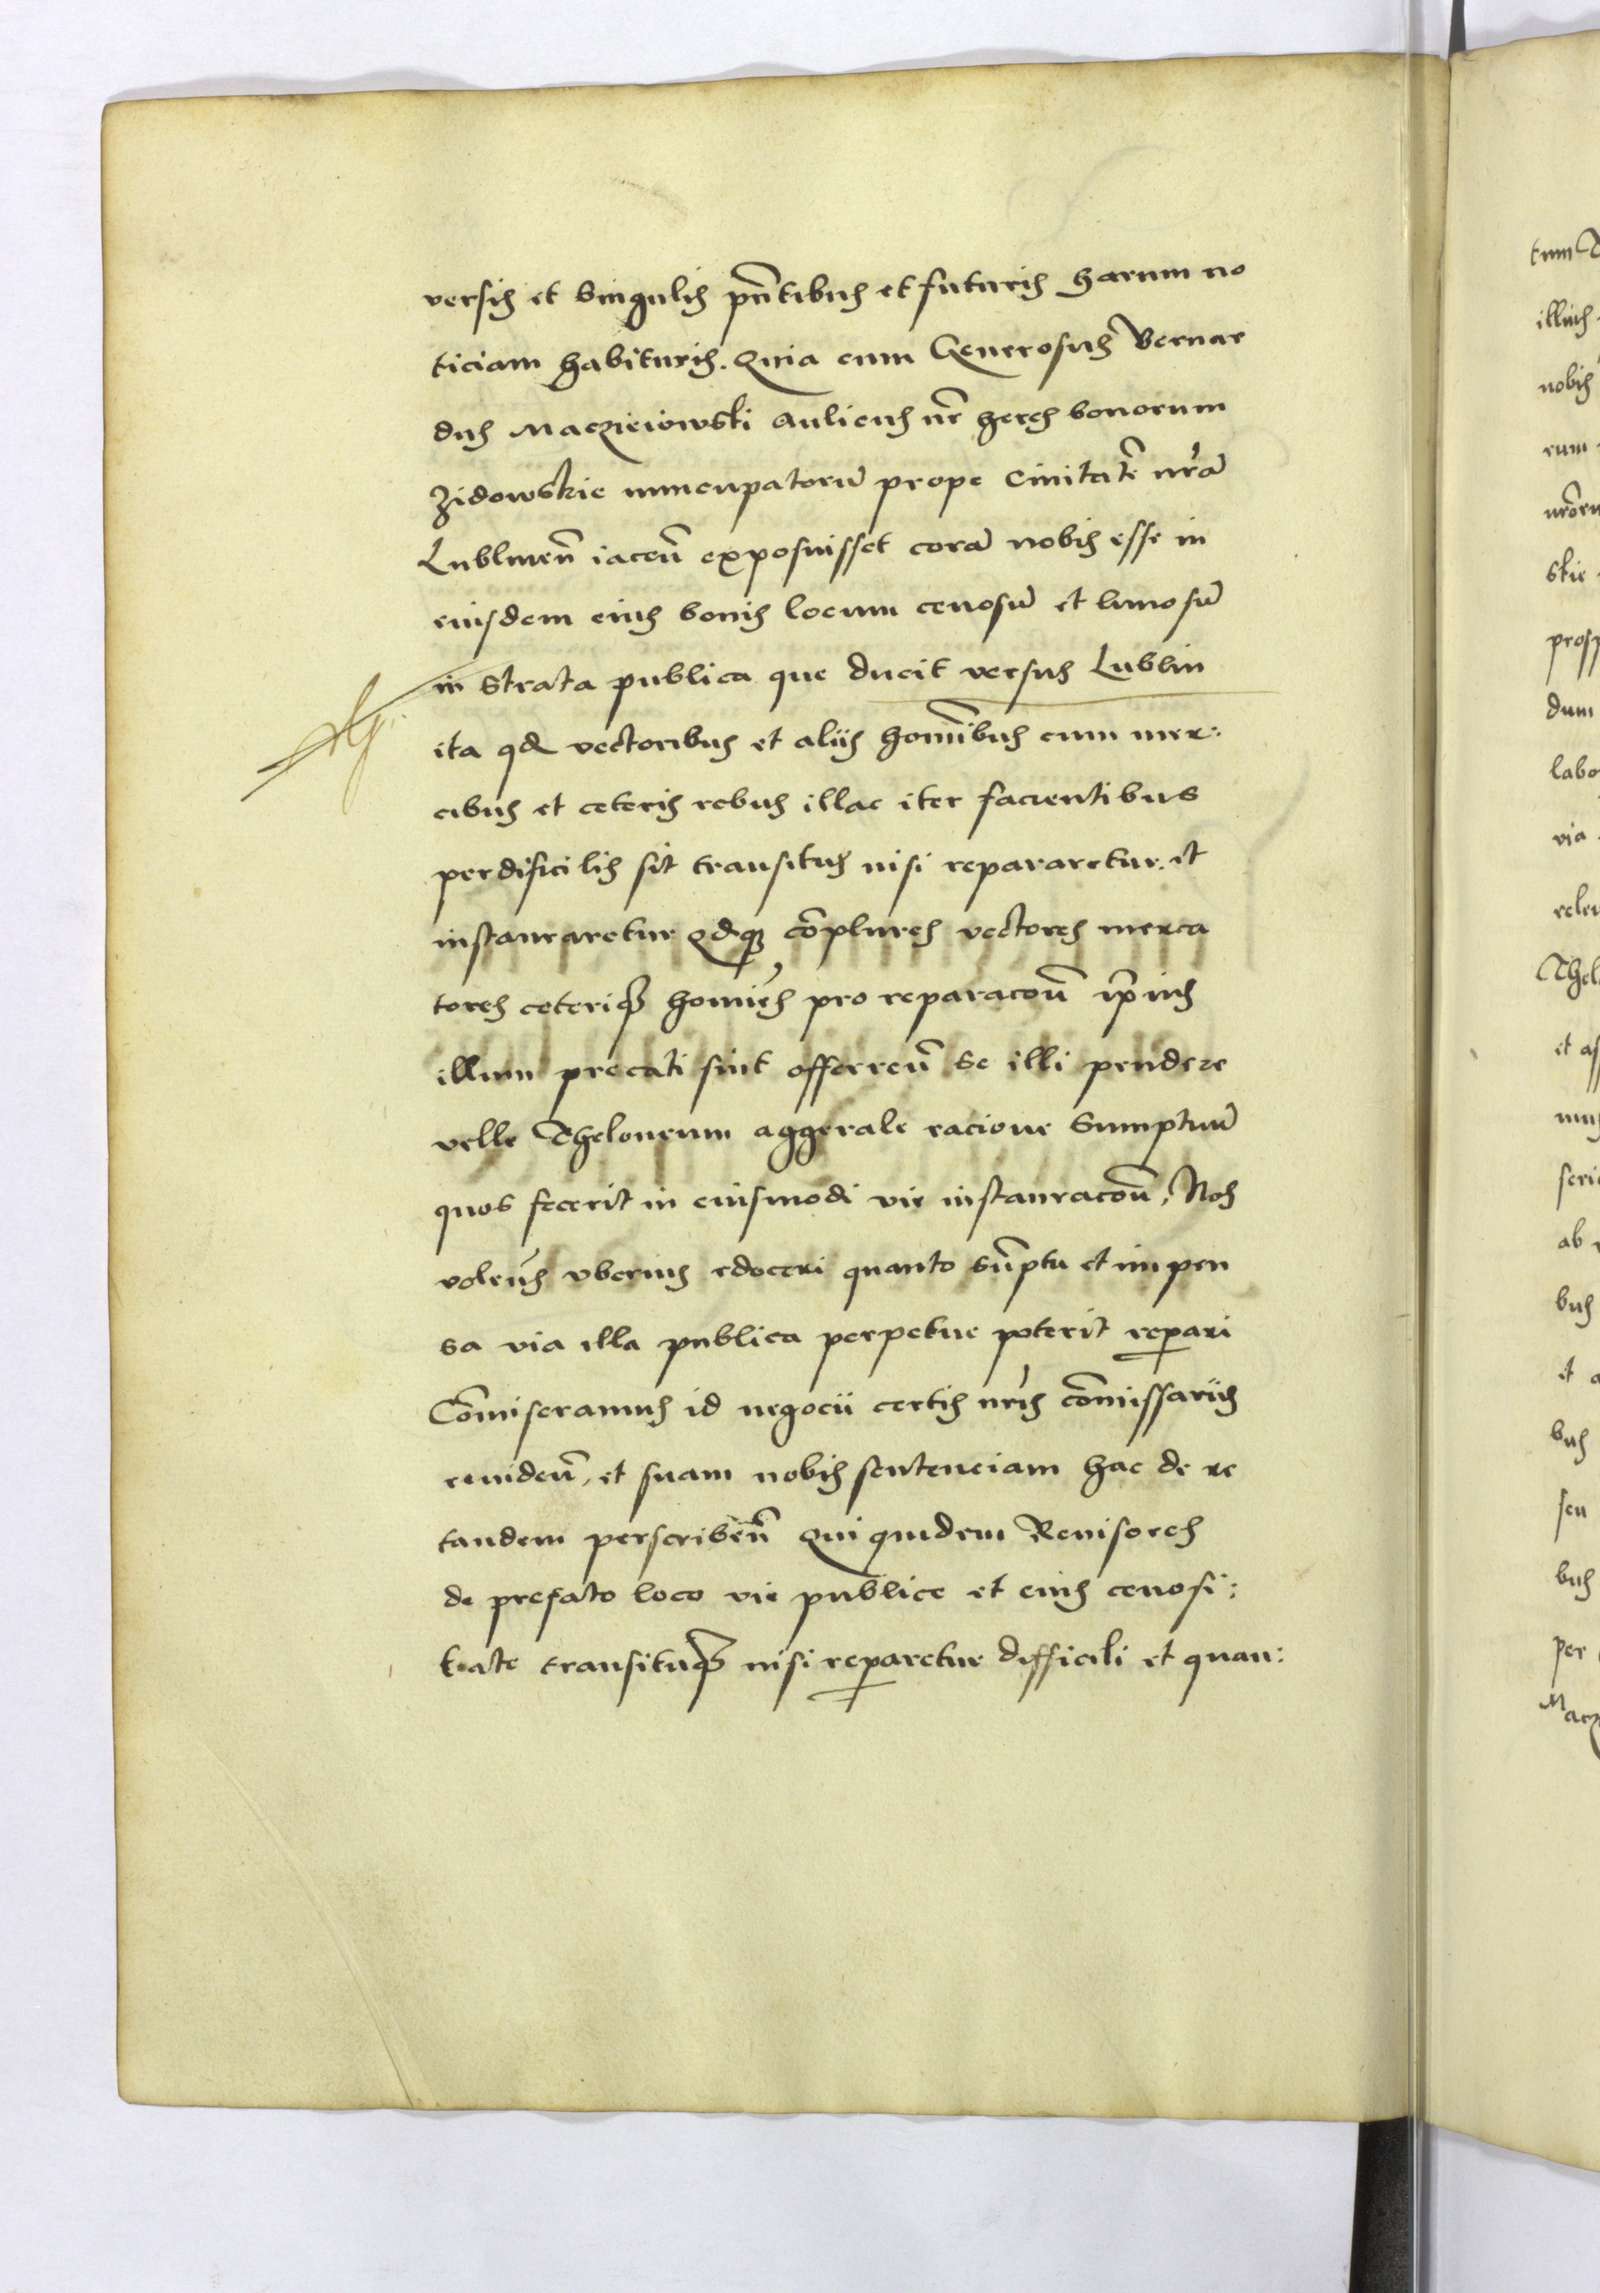 versis et Singulis pn̄tibus et futuris Harum no
ticiam habituris. Quia cum Generosus Bernar
dus Maczieiowski Aulicus nr̄ heres bonorum
Zidowskie nuncupatorū prope Civitatē nr̄ā
Lublineñ iaceñ exposuisset corā nobis esse in
eiusdem eius bonis locum cenosū et limosū
in Strata publica que ducit versus Lublin
ita qd vectoribus et aliis homīibus cum mer:
cibus et ceteris rebus illac iter facientibus
perdificilis sit transitus nisi repararetur et
instauraretur Qdq3 cōplures vectores merca
tores ceteriq3 homīes pro reparacoñ ip̄ius
illum precati sint offerreñ se illi pendere
velle Theloneum aggerale racione Sumptuū
quos fecerit in eiusmodi vie instauracoñ, Nos
voleñs uberius edoceri quanto sūptu et impen
sa via illa publica perpetue poterit repari
Cōmiseramus id negocii certis nr̄is cōmissariis
revideñ, et suam nobis sentenciam hac de re
tandem perscribeñ Qui quidem Revisores
de prefato loco vie publice et eius cenosi:
tate transituq3 nisi reparetur difficili et quan:
tum
illius
nobis
rum
nrōru
skie
prosp
dum
labo
via
relev
Thel
et as
seri
ab
bus
et a
bus
seu
bus
per
Macz